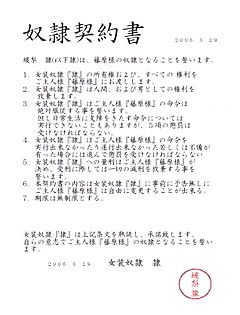 奴隷契約書
2006.5.29
隷(以下隷)は、藤原様の奴隷となることを誓います。
1. 女装奴隷『隷』の所有権および、すべての権利を
ご主人様『藤原様』にお渡しします。
2. 女装奴隷『隷』は人間、および男としての権利を
放棄します。
3. 女装奴隷『隷』はご主人様『藤原様』の命令は
絶対服従する事を誓います。
但し日常生活に支障をきたす命令については
実行できないこともありますが、5項の懲罰は
受けなければならない。
4. 女装奴隷『隷』はご主人様『藤原様』の命令を
実行出来なかったり遂行出来なかった若しくは不備が
あった場合には進んで懲罰を受けなければならない
5. 女装奴隷『隷』への量刑はご主人様『藤原様』が
決め、受刑に際しては一切の減刑を放棄する事を
誓います。
6. 本契約書の内容は女装奴隷『隷』に事前に予告無しに
ご主人様『藤原様』は自由に変更することが出来る。
7. 期限は無期限とする。
女装奴隷『隷』は上記条文を熟読し、承諾致します。
自らの意志でご主人様『藤原様』の奴隷となることを誓い
ます。
2006.5.29 女装奴隷 隷